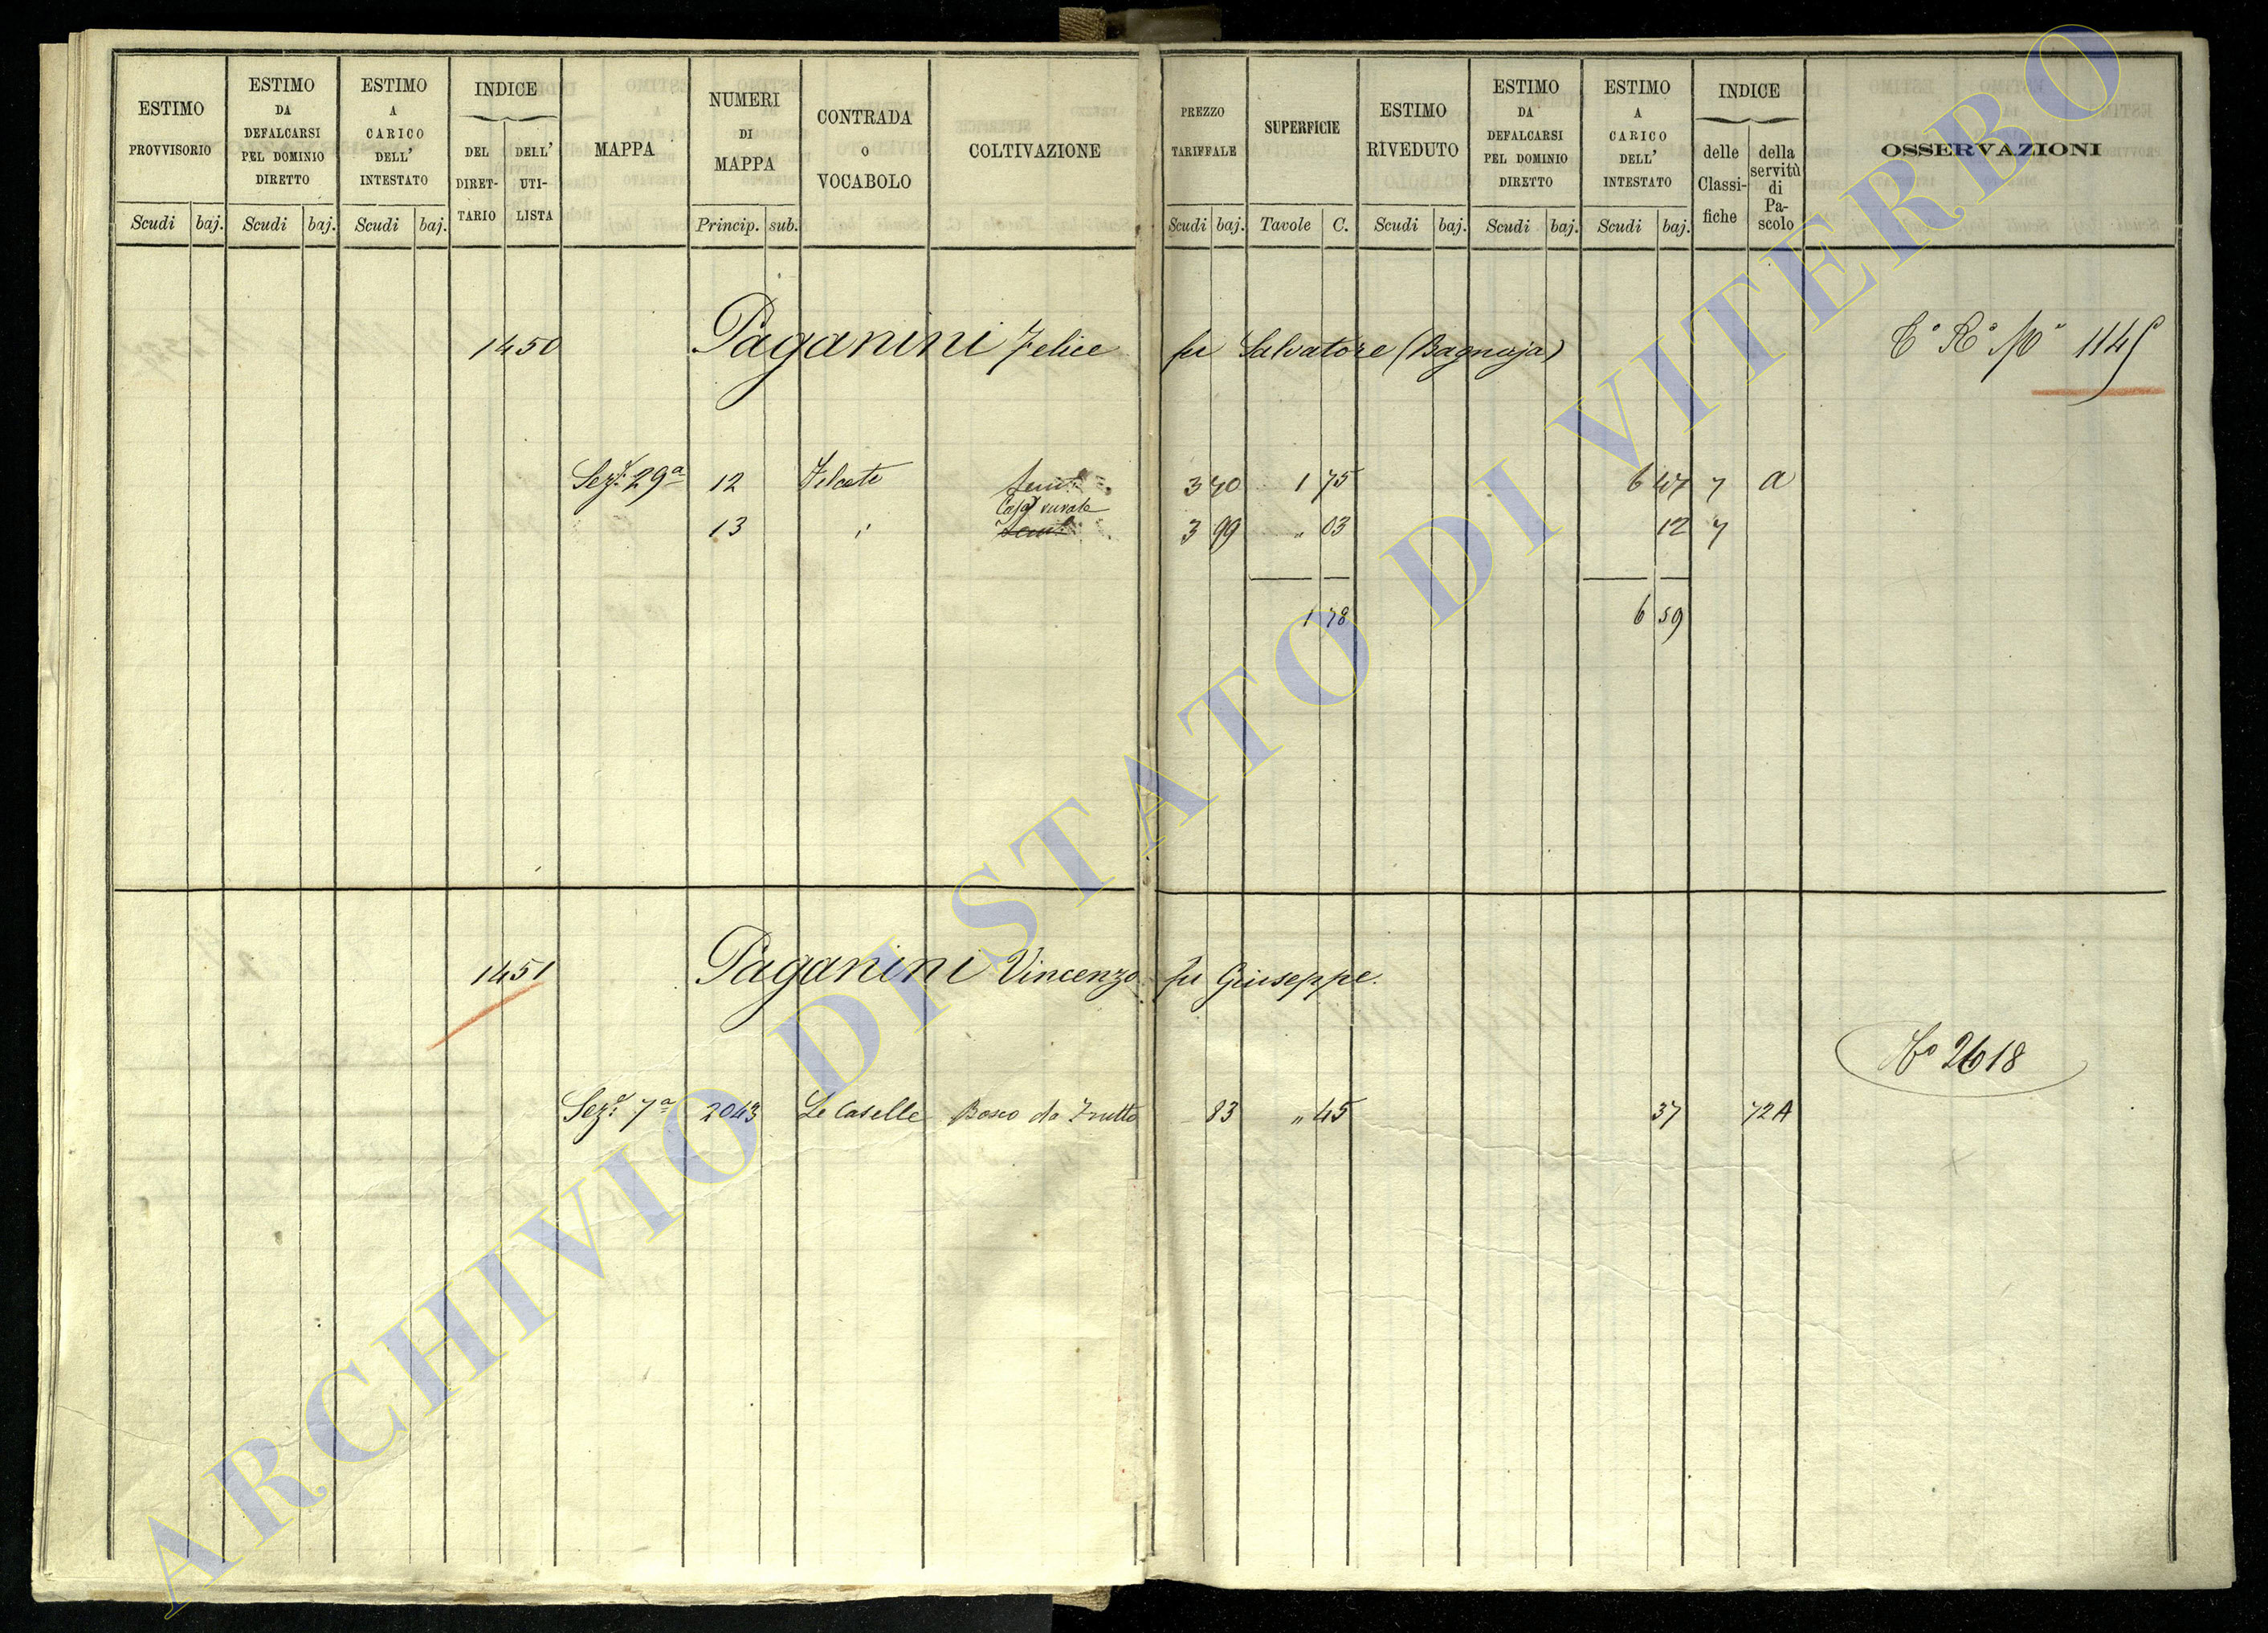 ESTIMO PROVVISORIO
Scudi baj.
ESTIMO DA DEFALCARSI PEL DOMINIO DIRETTO
Scudi baj.
ESTIMO A CARICO DELL' INTESTATO
Scudi baj.
INDICE
DEL DIRET-TARIO
DELL' UTI-LISTA
MAPPA
NUMERI DI MAPPA
Princip. sub.
CONTRADA O VOCABOLO
COLTIVAZIONE
PREZZO TARIFFALE
Scudi baj.
SUPERFICIE
Tavole C.
ESTIMO RIVEDUTO
Scudi baj.
ESTIMO DA DEFALCARSI PEL DOMINIO DIRETTO
Scudi baj.
ESTIMO A CARICO DELL' INTESTATO
Scudi baj.
INDICE
delle Classi-fiche
della servitù di Pa-scolo
OSSERVAZIONI
1450 Paganini Felice fu Salvatore (Bagnaja)
Sez.e 29a 12 3 70 1 75 6 47 7 a
Casa rurale
13 " 3 99 " 03 12 7
1 78 6 59
1451 Paganini Vincenzo fu Giuseppe.
No 2618
Sez.e 7a 2043 Le Caselle Bosco da Frutto 83 " 45 37 72A
ARCHIVIO DI STATO DI VITERBO